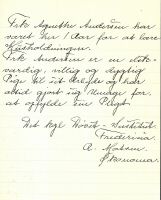 Frk Agnethe Andersen har
været her 1 Aar for at lære
Husholdningen.
Frk Andersen er en elsk-
værdig, villig og dygtig
Pige til sit Arbejde og har
altid gjort sig Umage for
at opfylde sin Pligt
Det kgl Døvst- Institut
Fredericia
A. Madsen